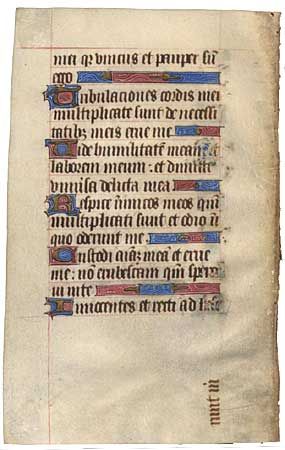 mei qr vnicus et pauper sū
ego
Tribulaciones cordis mei
multiplicate sunt de necessi
tatibz meis erue me
Vide humilitatem meam et
laborem meum : et dimitte
vniuersa delicta mea
Respice inimicos meos qm̄
multiplicati sunt et odio ini
quo oderunt me
Custodi aīaz meā et erue
me : nō erubescam qm̄ spera
ui in te
Innocentes et recti adhese
runt m̄